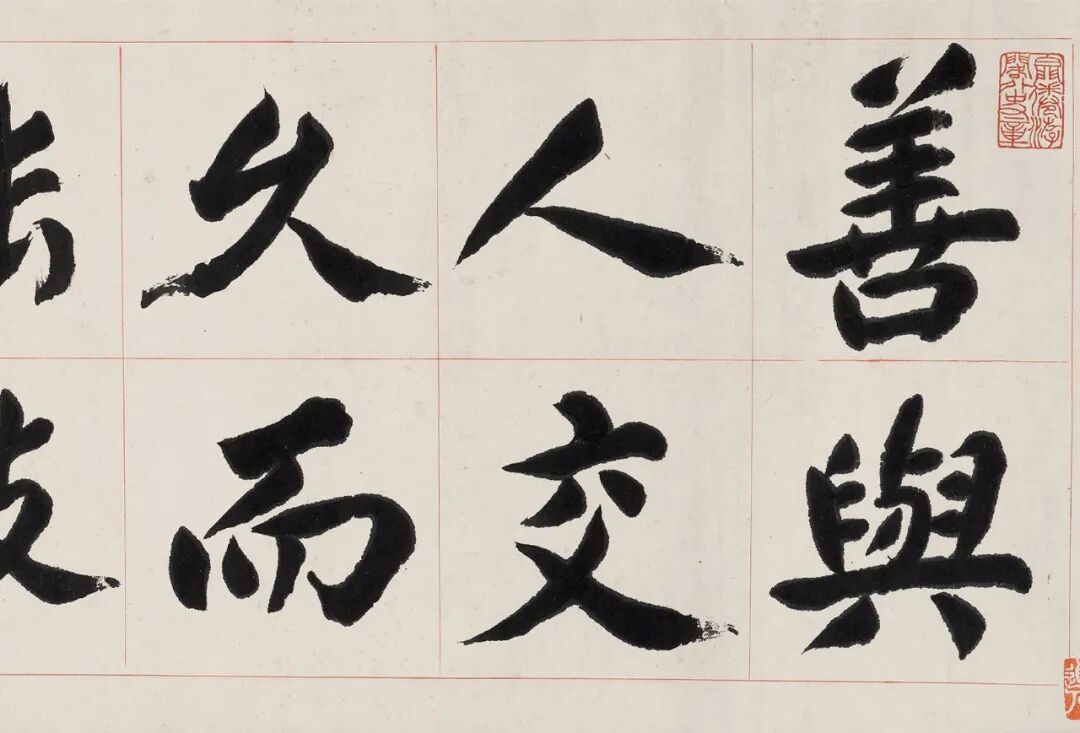 善與
人交
久而
敬